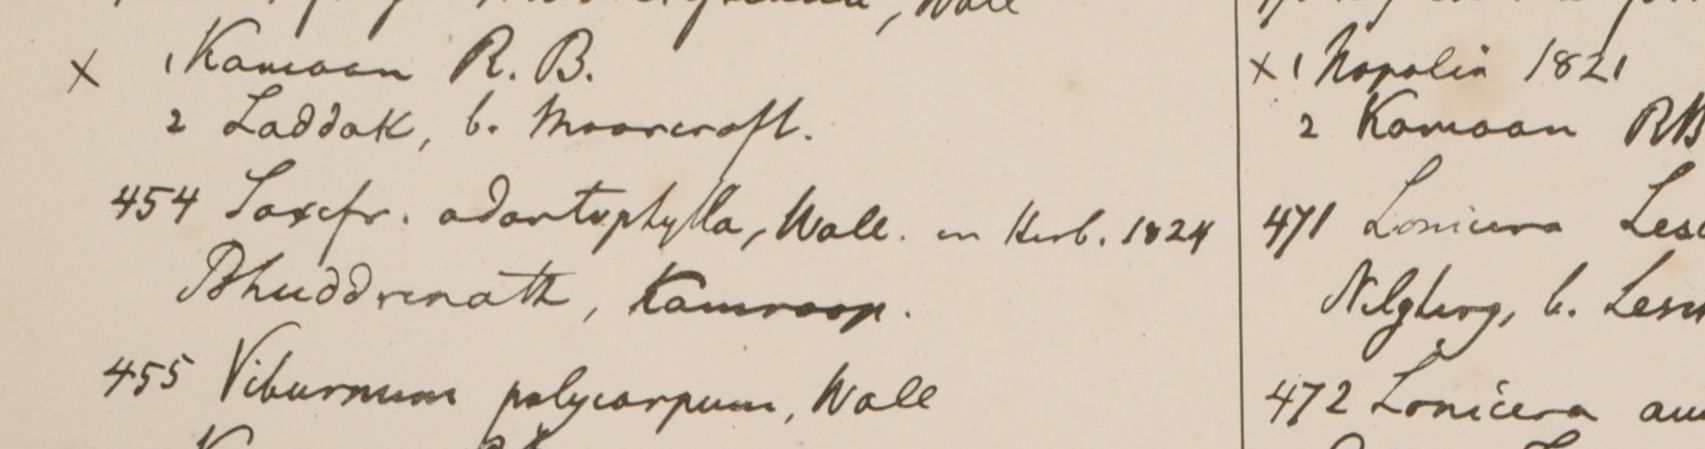 Wall
x 1 Kamaon R. B.
2 Laddak, b. Moorcroft.
454 Saxifr. odontophylla, Wall. in Herb. 1824
Bhuddrinath, Kamroop.
455 Viburnum polycarpum, Wall
x 1 Napalia 1821
2 Kamaon RB
471 Lonicera Les
Nilghirry, b. Lesn
472 Lonicera au